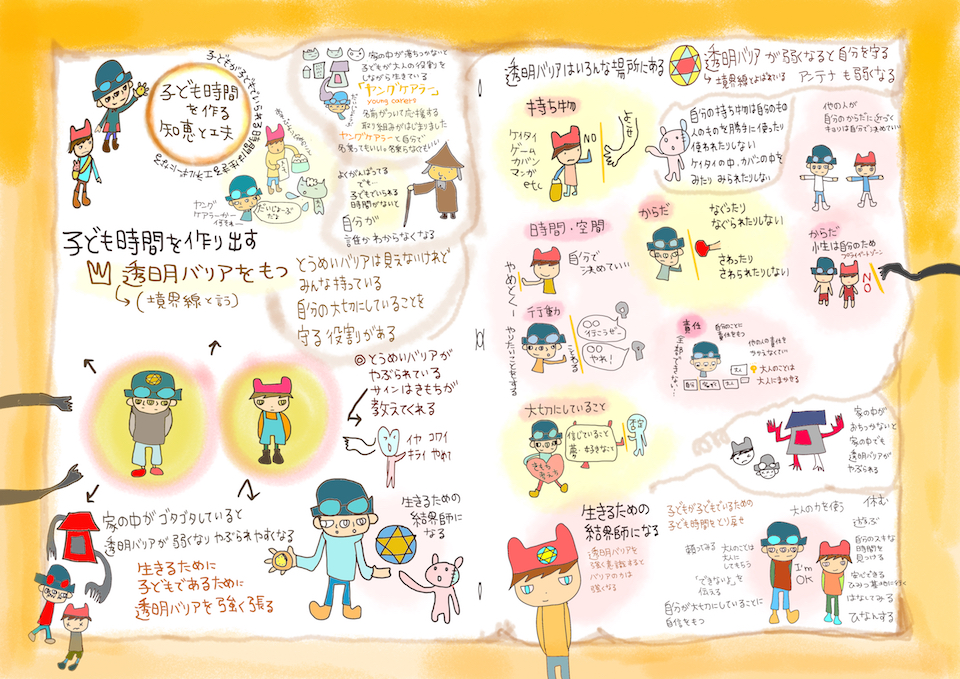 子どもが子どもでいられる時間は
子ども時間
を作る
知恵と工夫
家の中が落ちつかないと
子どもが大人の役割を
しながら生きている
「ヤングケアラー」
young carers
名前がついて応援する
取り組みがはじまりました
ヤングケアラーと自分で
名乗ってもいい。名乗らなくてもいい
ヤング
ケアラーかー
だいじょーぶだ
よ
よくがんばってる
でも…
子どもでいられる
時間がないと
自分が
誰かわからなくなる
子ども時間を作り出す
透明バリアをもつ
(境界線と言う)
とうめいバリアは見えないけれど
みんな持っている
自分の大切にしていることを
守る役割がある
◎とうめいバリアが
やぶられている
サインはきもちが
教えてくれる
イヤ コワイ
キライ やめて
家の中がゴタゴタしていると
透明バリアが弱くなりやぶられやすくなる
生きるために
子どもであるために
透明バリアを強く張る
生きるための
結界師に
なる
透明バリアはいろんな場所にある
透明バリアが弱くなると自分を守る
境界線とよばれている
アンテナも弱くなる
持ち物
ケイタイ
ゲーム
カバン
マンガ
etc
NO
よせ
自分の持ち物は自分のもの
人のものを勝手に使ったり
使われたりしない
ケイタイの中、カバンの中を
みたり みられたりしない
他の人が
自分のからだに近づく
キョリは自分で決めていい
時間・空間
自分で
決めていい
やめとく
からだ
なぐったり
なぐられたりしない
さわったり
さわられたりしない
からだ
小生は自分のため
プライベートゾーン
NO
行動
やりたいことをする
ことわる
○○
行こうぜー
○○
やれ!
責任
自分のことに
責任をもつ
他の人の責任を
うけない
全部できない…
大人
大人のことは
大人にまかせる
大切にしていること
信じていること
夢・好きなこと
きもち
考え方
否定
家の中が
おちつかないと
家の中でも
透明バリアが
やぶられる
生きるための
結界師になる
透明バリアを
強く意識すると
バリアの力は
強くなる
子どもが子どもでいるための
子ども時間をとり戻せ
大人の力を使う
頼ってみる
大人のことは
大人に
してもらう
「できないよ」を
伝える
自分が大切にしていることに
自信をもつ
I'm
OK
休む
遊ぶ
自分のスキな
時間を
見つける
安心できる
ひみつ基地に行く
はなしてみる
ひなんする